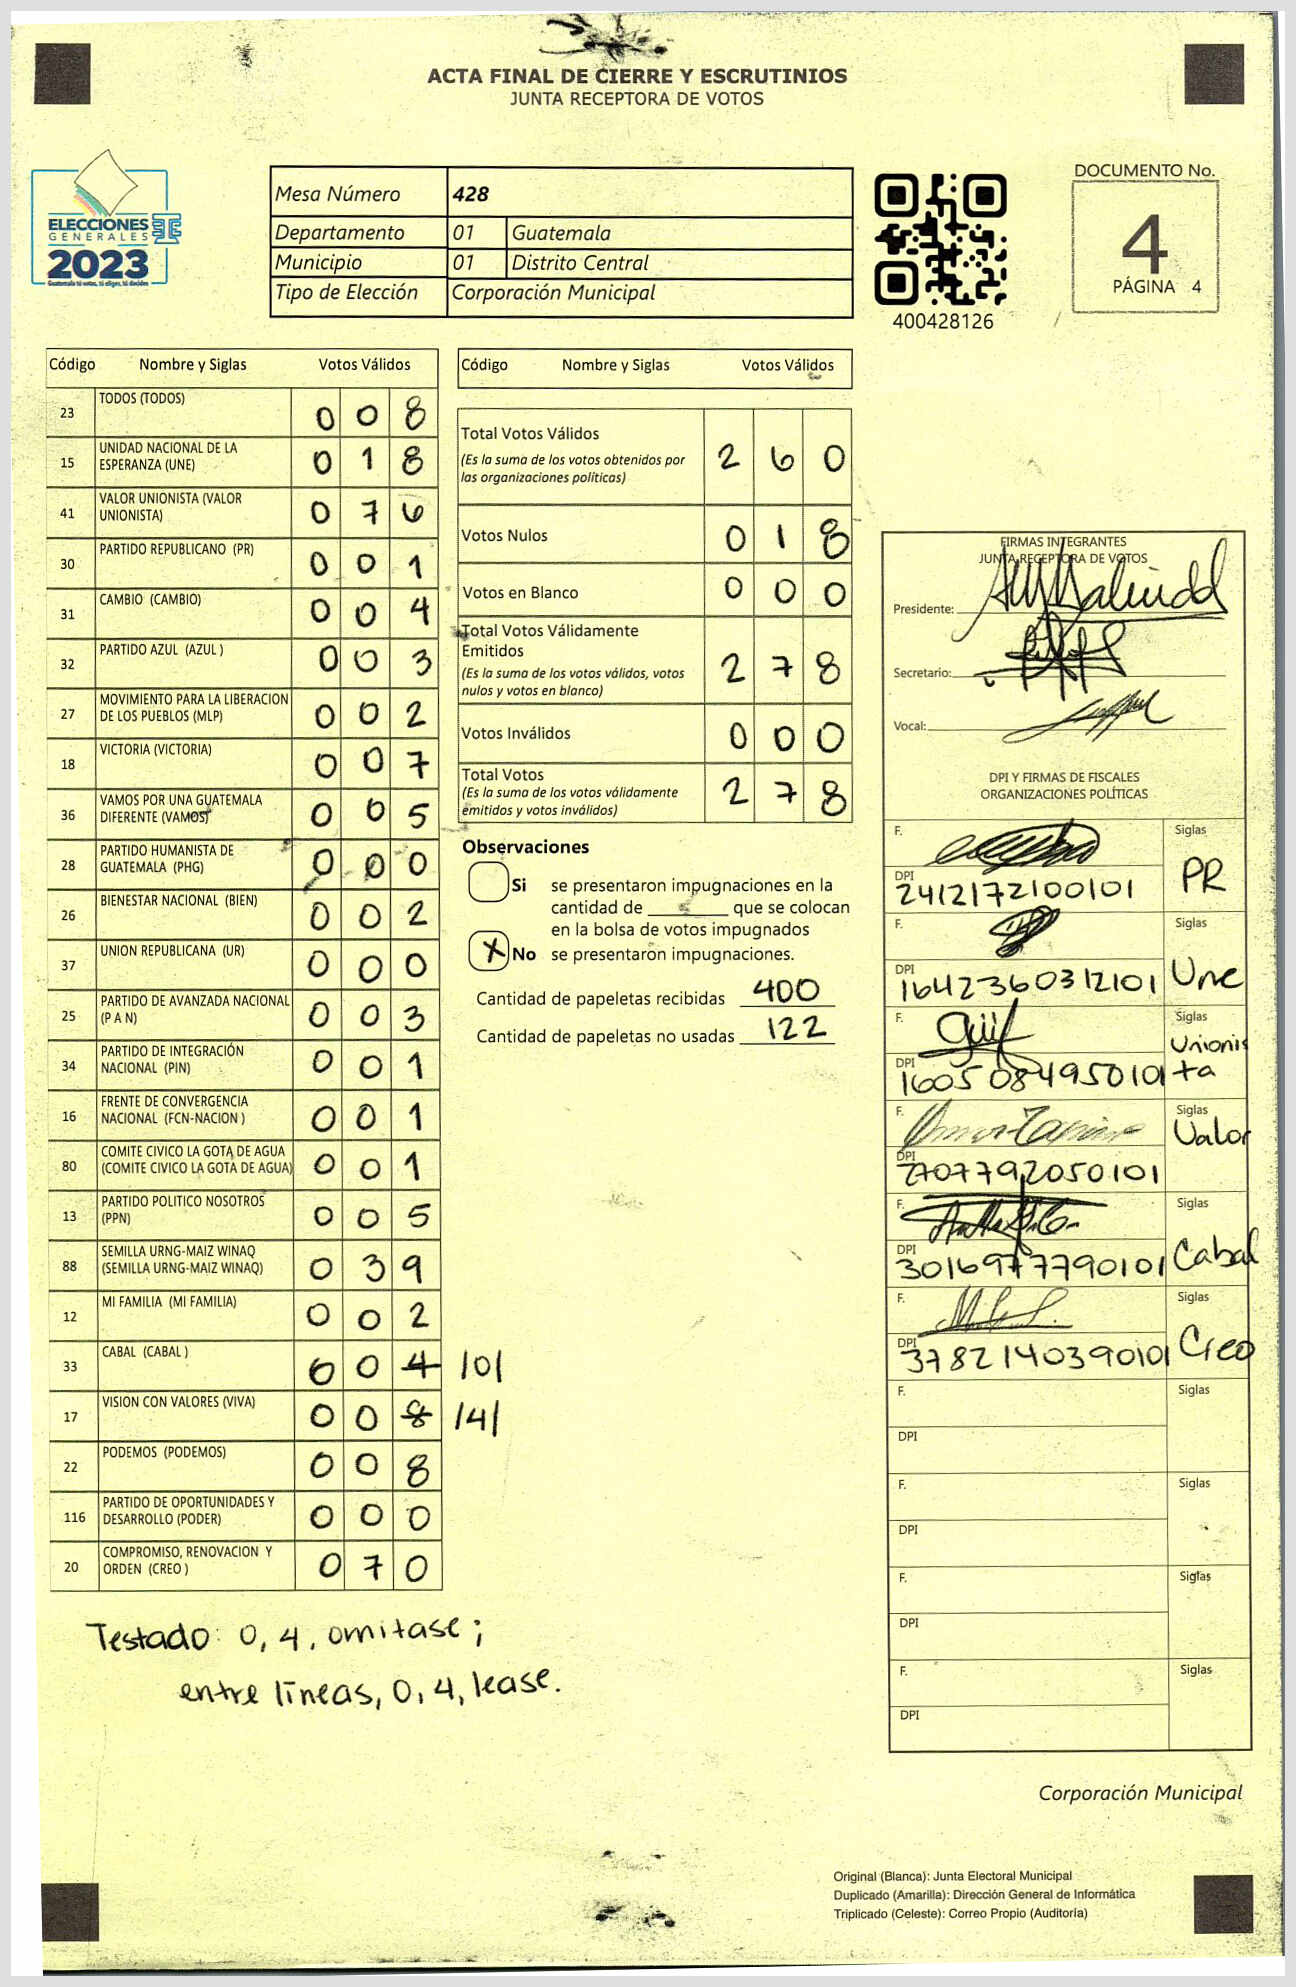 ACTA FINAL DE CIERRE Y ESCRUTINIOS
JUNTA RECEPTORA DE VOTOS
ELECCIONES
GENERALES
2023
Guatemala tú votas, tú eliges, tú decides
Mesa Número 428
Departamento 01 Guatemala
Municipio 01 Distrito Central
Tipo de Elección Corporación Municipal
400428126
DOCUMENTO No.
4
PÁGINA 4
Código Nombre y Siglas Votos Válidos
23 TODOS (TODOS) 0 0 8
15 UNIDAD NACIONAL DE LA ESPERANZA (UNE) 0 1 8
41 VALOR UNIONISTA (VALOR UNIONISTA) 0 7 6
30 PARTIDO REPUBLICANO (PR) 0 0 1
31 CAMBIO (CAMBIO) 0 0 4
32 PARTIDO AZUL (AZUL ) 0 0 3
27 MOVIMIENTO PARA LA LIBERACION DE LOS PUEBLOS (MLP) 0 0 2
18 VICTORIA (VICTORIA) 0 0 7
36 VAMOS POR UNA GUATEMALA DIFERENTE (VAMOS) 0 0 5
28 PARTIDO HUMANISTA DE GUATEMALA (PHG) 0 0 0
26 BIENESTAR NACIONAL (BIEN) 0 0 2
37 UNION REPUBLICANA (UR) 0 0 0
25 PARTIDO DE AVANZADA NACIONAL (P A N) 0 0 3
34 PARTIDO DE INTEGRACIÓN NACIONAL (PIN) 0 0 1
16 FRENTE DE CONVERGENCIA NACIONAL (FCN-NACION ) 0 0 1
80 COMITE CIVICO LA GOTA DE AGUA (COMITE CIVICO LA GOTA DE AGUA) 0 0 1
13 PARTIDO POLITICO NOSOTROS (PPN) 0 0 5
88 SEMILLA URNG-MAIZ WINAQ (SEMILLA URNG-MAIZ WINAQ) 0 3 9
12 MI FAMILIA (MI FAMILIA) 0 0 2
33 CABAL (CABAL ) 0 0 4 /0/
17 VISION CON VALORES (VIVA) 0 0 8 /4/
22 PODEMOS (PODEMOS) 0 0 8
116 PARTIDO DE OPORTUNIDADES Y DESARROLLO (PODER) 0 0 0
20 COMPROMISO, RENOVACION Y ORDEN (CREO ) 0 7 0
Testado: 0, 4, omitase;
entre líneas, 0, 4, lease.
Código Nombre y Siglas Votos Válidos
Total Votos Válidos 2 6 0
(Es la suma de los votos obtenidos por
las organizaciones políticas)
Votos Nulos 0 1 8
Votos en Blanco 0 0 0
Total Votos Válidamente
Emitidos 2 7 8
(Es la suma de los votos válidos, votos
nulos y votos en blanco)
Votos Inválidos 0 0 0
Total Votos 2 7 8
(Es la suma de los votos válidamente
emitidos y votos inválidos)
Observaciones
Si se presentaron impugnaciones en la
cantidad de ______ que se colocan
en la bolsa de votos impugnados
X No se presentaron impugnaciones.
Cantidad de papeletas recibidas 400
Cantidad de papeletas no usadas 122
FIRMAS INTEGRANTES
JUNTA RECEPTORA DE VOTOS
Presidente:
Secretario:
Vocal:
DPI Y FIRMAS DE FISCALES
ORGANIZACIONES POLÍTICAS
F. Siglas
DPI 2412172100101 PR
F. Siglas
DPI 1642360312101 Une
F. Siglas
DPI 1605084950101 Unionista
F. Siglas
DPI 2707792050101 Valor
F. Siglas
DPI 3016977790101 Cabal
F. Siglas
DPI 3782140390101 Creo
F. Siglas
DPI
F. Siglas
DPI
F. Siglas
DPI
F. Siglas
DPI
Corporación Municipal
Original (Blanca): Junta Electoral Municipal
Duplicado (Amarilla): Dirección General de Informática
Triplicado (Celeste): Correo Propio (Auditoría)